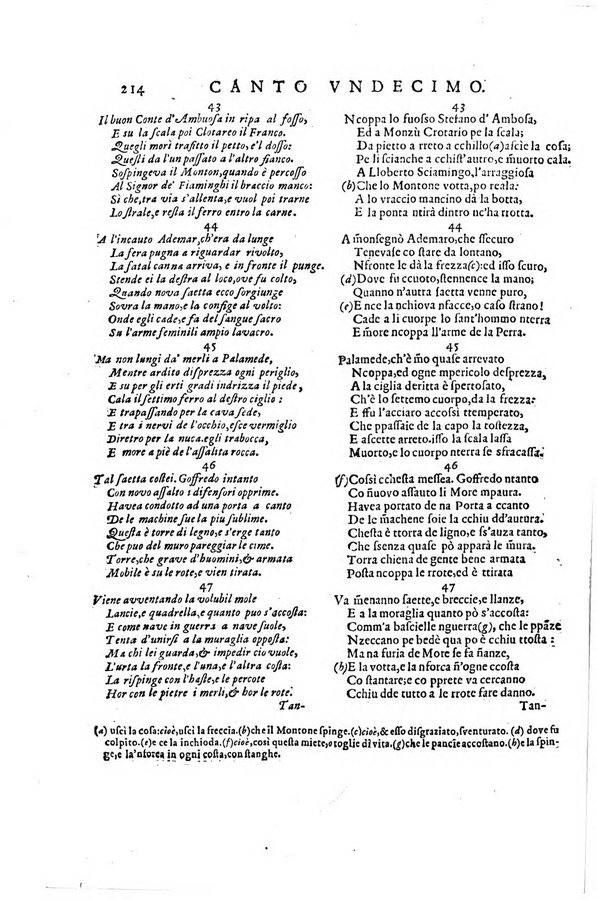 214 CANTO VNDECIMO.
43
Il buon Conte d'Ambuosa in ripa al fosso,
E su la scala poi Clotareo il Franco.
Quegli morì trafitto il petto, e'l dosso:
Questi da l'un passato a l'altro fianco.
Sospingeva il Monton, quando è percosso
Al Signor de' Fiaminghi il braccio manco:
Sì che, tra via s'allenta, e vuol poi trarne
Lo strale, e resta il ferro entro la carne.
44
A l'incauto Ademar, ch'era da lunge
La fera pugna a riguardar rivolto,
La fatal canna arriva, e in fronte il punge.
Stende ei la destra al loco, ove fu colto,
Quando nova saetta ecco sorgiunge
Sovra la mano, e la configge al volto:
Onde egli cade, e fa del sangue sacro
Su l'arme feminili ampio lavacro.
45
Ma non lungi da' merli a Palamede,
Mentre ardito disprezza ogni periglio,
E su per gli erti gradi indrizza il piede,
Cala il settimo ferro al destro ciglio:
E trapassando per la cava sede,
E tra i nervi de l'occhio, esce vermiglio
Diretro per la nuca. egli trabocca,
E more a piè de l'assalita rocca.
46
Tal saetta costei. Goffredo intanto
Con novo assalto i difensori opprime.
Havea condotto ad una porta a canto
De le machine sue la più sublime.
Questa è torre di legno, e s'erge tanto
Che può del muro pareggiar le cime.
Torre, che grave d'huomini, & armata
Mobile è su le rote, e vien tirata.
47
Viene avventando la volubil mole
Lancie, e quadrella, e quanto può s'accosta:
E come nave in guerra a nave suole,
Tenta d'unirsi a la muraglia opposta:
Ma chi lei guarda, & impedir ciò vuole,
L'urta la fronte, e l'una, e l'altra costa:
La rispinge con l'haste, e le percote
Hor con le pietre i merli, & hor le rote.
Tan-
43
Ncoppa lo fuosso Stefano d' Ambosa,
Ed a Monzù Crotario pe la scala;
Da pietto a rreto a cchillo(a)ascìe la cosa;
Pe li scianche a cchist'autro, e m̃orto cala.
A Lloberto Sciamingo, l'arraggiosa
(b)Che lo Montone votta, po reala:
A lo vraccio mancino dà la botta,
E la ponta ntirà dintro nc'ha rrotta.
44
A monsegnò Ademaro, che ssecuro
Tenevase co stare da lontano,
Nfronte le dà la frezza(c): ed isso scuro,
(d)Dove fu ccuoto, stennenno la mano;
Quanno n'autra saetta venne puro,
(e)E nce la nchiova nfacce, o caso strano!
Cade a li cuorpe lo sant'hommo nterra
E m̃ore ncoppa ll'arme de la Perra.
45
Palamede, ch'è m̃o quase arrevato
Ncoppa, ed ogne mpericolo desprezza,
A la ciglia deritta è spertosato,
Ch'è lo settemo cuorpo, da la frezza:
E ffu l'acciaro accossì ttemperato,
Che ppassaie de la capo la tostezza,
E ascette arreto. isso la scala lassa
Muorto, e lo cuorpo nterra se sfracassa.
46
(f)Cossì cchesta messea. Goffredo ntanto
Co ñuovo assauto li More mpaura.
Havea portato de na Porta a ccanto
De le machene soie la cchiù dd'autura.
Chesta è ttorra de ligno, e ss'auza tanto,
Che ssenza quase pò apparà le m̃ura.
Torra chiena de gente bene armata
Posta ncoppa le rrote, ed è ttirata
47
Va m̃enanno saette, e breccie, e llanze,
E a la moraglia quanto pò s'accosta:
Comm'a bascielle nguerra(g), che le ppãze
Nzeccano pe bedè qua pò e cchiu ttosta:
Ma na furia de More se fa ñanze,
(h)E la votta, e la nforca ñ'ogne ccosta
Co stantare; e co pprete va cercanno
Cchiu dde tutto a le rrote fare danno.
Tan-
(a) uscì la cosa: cioè, uscì la freccia. (b) che il Montone spinge. (c) cioè, & esso disgraziato, sventurato. (d) dove fu
colpito. (e) e ce la inchioda. (f) cioè, così questa miete, o toglie di vita. (g) che le pancie accostano. (h) e la spin-
ge, e la'nforca in ogni costa, con stanghe.